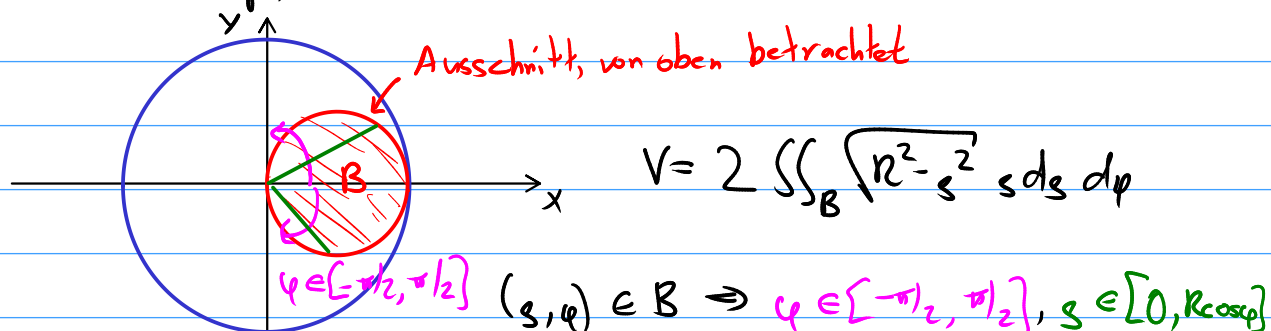 y
Ausschnitt, von oben betrachtet
B
x
V = 2 ∬_B √(R² - ρ²) ρ dρ dφ
φ ∈ [-π/2, π/2]
(ρ, φ) ∈ B ⇒ φ ∈ [-π/2, π/2], ρ ∈ [0, R cos φ]